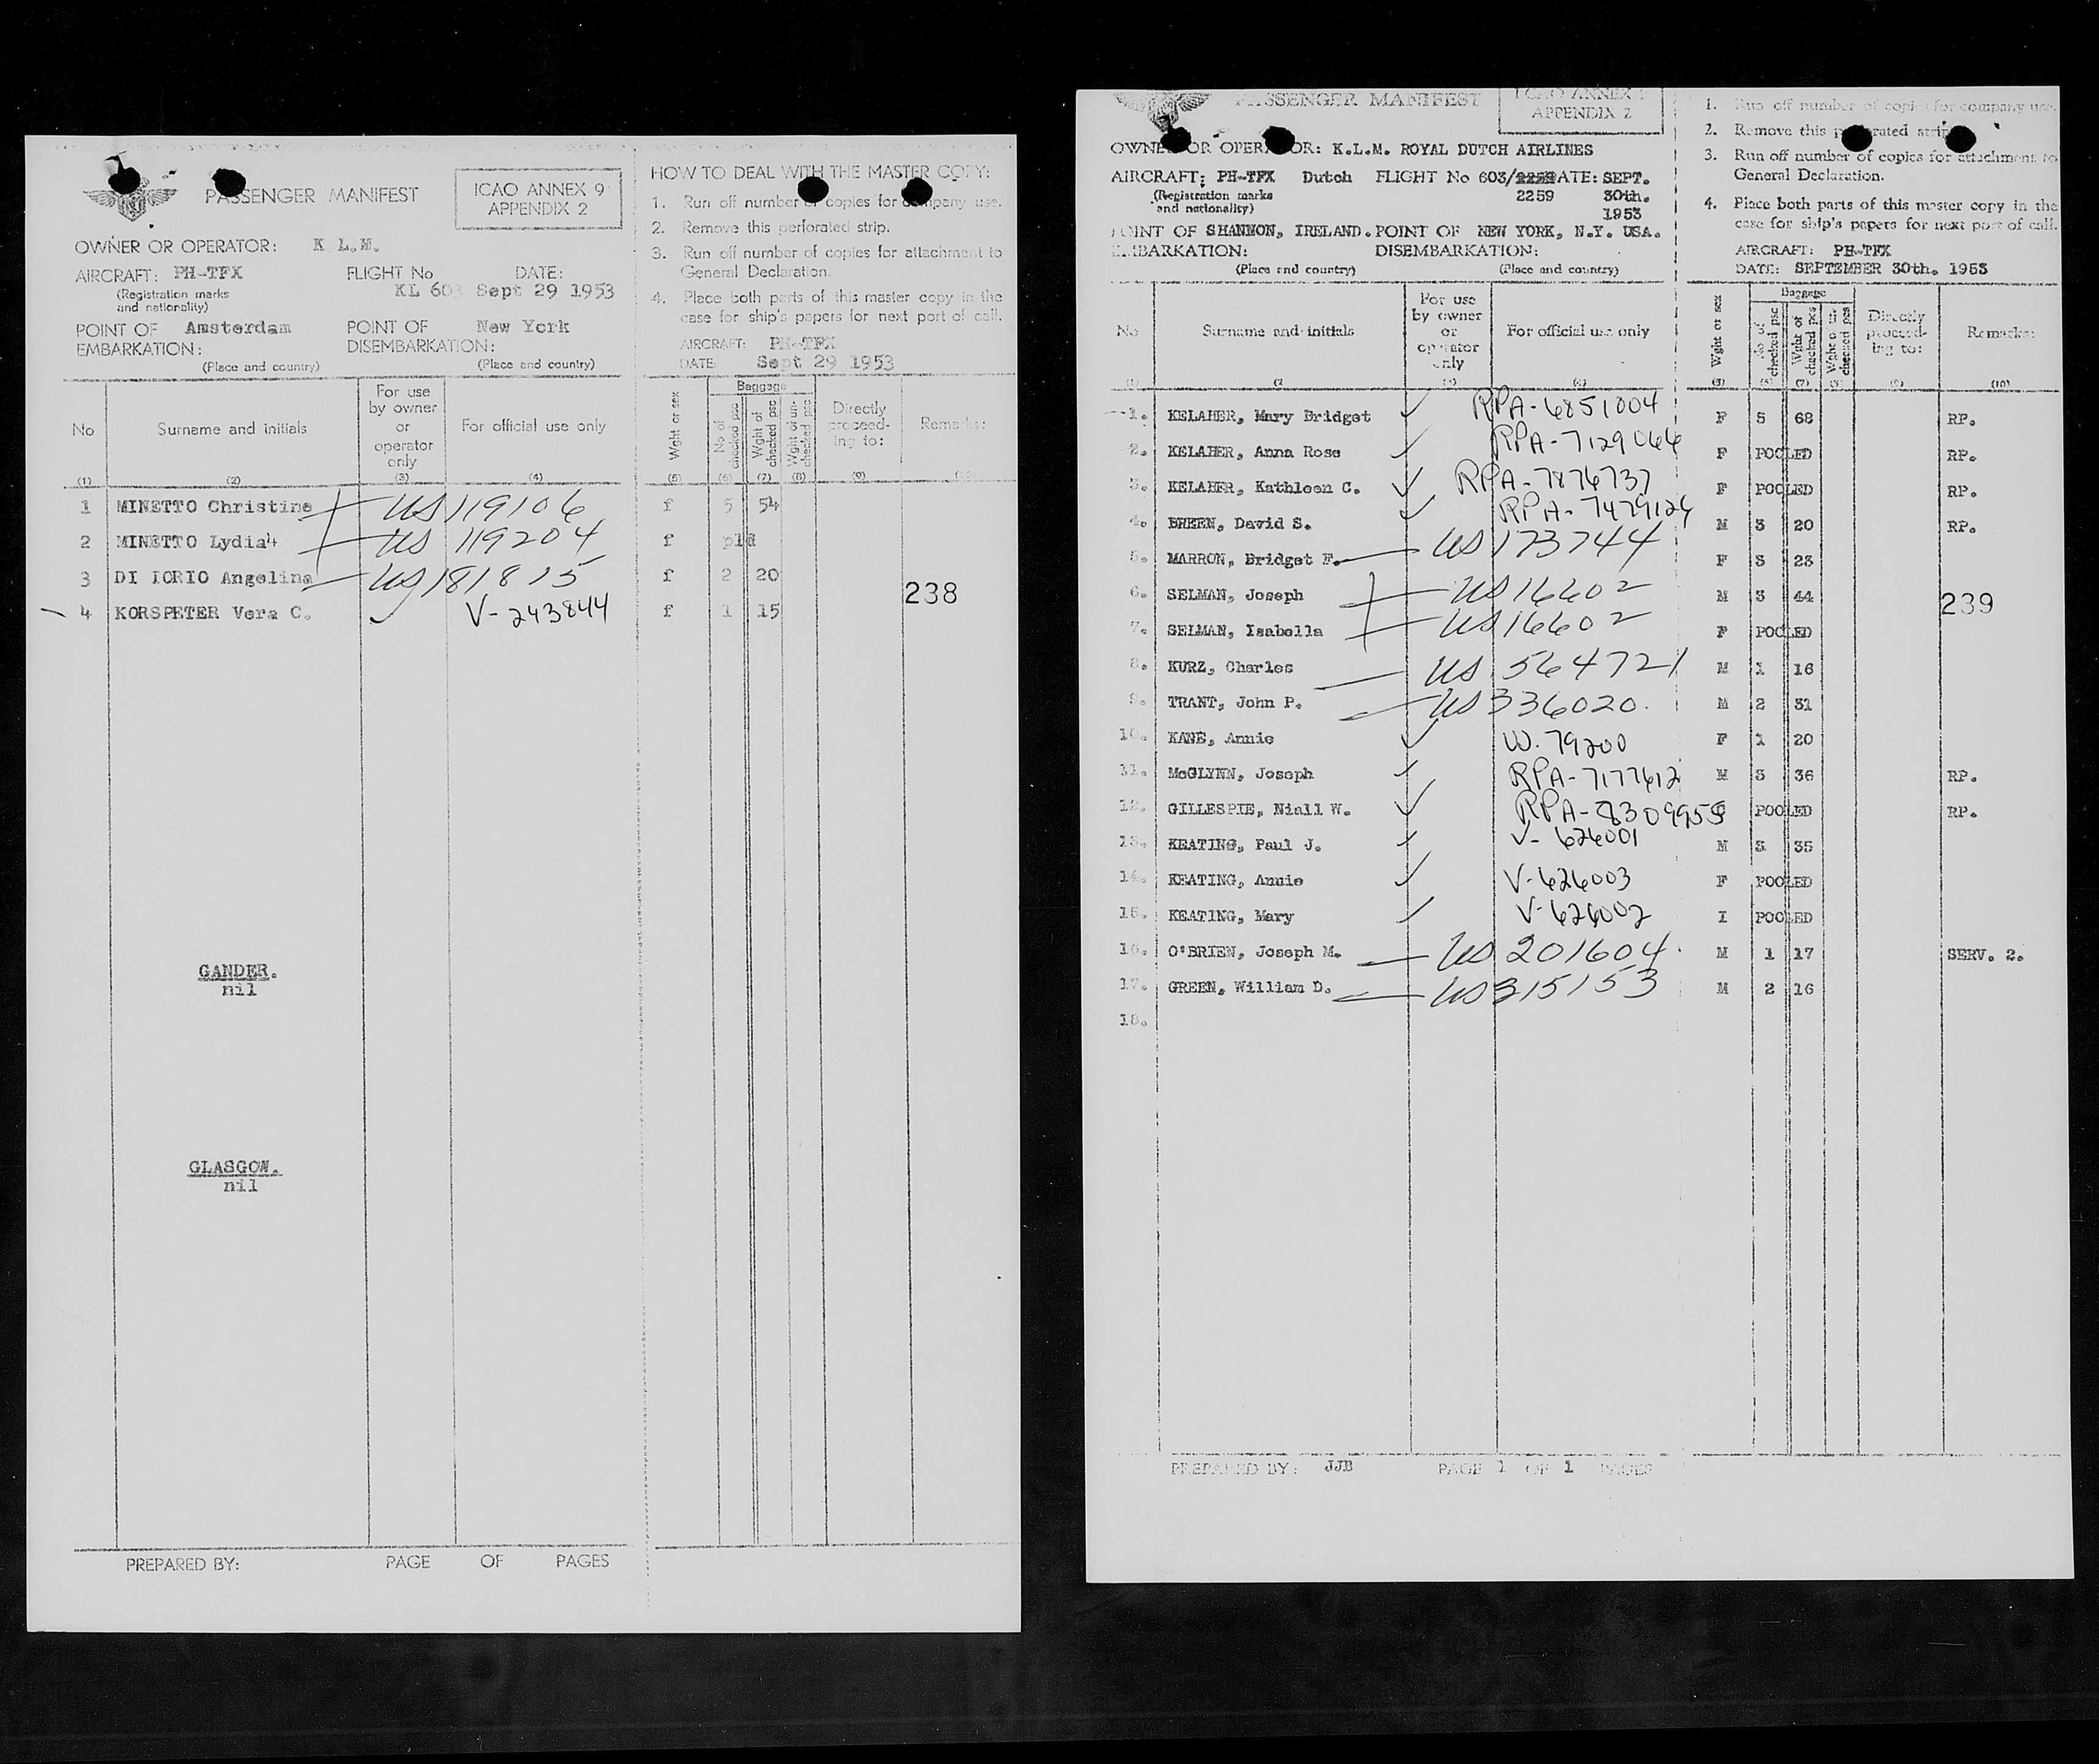 PASSENGER MANIFEST
ICAO ANNEX 9
APPENDIX 2
OWNER OR OPERATOR: K.L.M.
AIRCRAFT: PH-TFX FLIGHT No DATE:
(Registration marks KL 603 Sept 29 1953
and nationality)
POINT OF Amsterdam POINT OF New York
EMBARKATION: DISEMBARKATION:
(Place and country) (Place and country)
HOW TO DEAL WITH THE MASTER COPY:
1. Run off number of copies for company use.
2. Remove this perforated strip.
3. Run off number of copies for attachment to
General Declaration.
4. Place both parts of this master copy in the
case for ship's papers for next port of call.
AIRCRAFT: PH-TFX
DATE: Sept 29 1953
No Surname and initials For use by owner or operator only For official use only Wght or sex Baggage No of checked psc Wght of checked psc Wght of un-checked psc Directly proceed-ing to: Remarks:
(1) (2) (3) (4) (5) (6) (7) (8) (9) (10)
1 MINETTO Christine US 119106 f 5 54
2 MINETTO Lydia US 119204 f pld
3 DI IORIO Angelina US 181815 f 2 20
4 KORSPETER Vera C. ✓ V-243844 f 1 15
238
GANDER.
nil
GLASGOW.
nil
PREPARED BY: PAGE OF PAGES
PASSENGER MANIFEST
ICAO ANNEX
APPENDIX 2
OWNER OR OPERATOR: K.L.M. ROYAL DUTCH AIRLINES
AIRCRAFT: PH-TFX Dutch FLIGHT No 603/ DATE: SEPT.
(Registration marks 2259 30th.
and nationality) 1953
POINT OF SHANNON, IRELAND. POINT OF NEW YORK, N.Y. USA.
EMBARKATION: DISEMBARKATION:
(Place and country) (Place and country)
1. Run off number of copies for company use.
2. Remove this perforated strip
3. Run off number of copies for attachment to
General Declaration.
4. Place both parts of this master copy in the
case for ship's papers for next port of call.
AIRCRAFT: PH-TFX
DATE: SEPTEMBER 30th. 1953
No Surname and initials For use by owner or operator only For official use only Wght or sex Baggage No of checked psc Wght of checked pcs Wght of un-checked pcs Directly proceed-ing to: Remarks:
(1) (2) (3) (4) (5) (6) (7) (8) (9) (10)
1. KELAHER, Mary Bridget ✓ RPA-6851004 F 5 68 RP.
2. KELAHER, Anna Rose ✓ RPA-7129066 F POOLED RP.
3. KELAHER, Kathleen C. ✓ RPA-7876737 F POOLED RP.
4. BREEN, David S. ✓ RPA-7479126 M 3 20 RP.
5. MARRON, Bridget F. US 173744 F 3 23
6. SELMAN, Joseph US 16602 M 3 44
239
7. SELMAN, Isabella US 16602 F POOLED
8. KURZ, Charles US 564721 M 1 16
9. TRANT, John P. US 336020. M 2 31
10. KANE, Annie ✓ W. 79200 F 1 20
11. McGLYNN, Joseph ✓ RPA-7177612 M 3 36 RP.
12. GILLESPIE, Niall W. ✓ RPA-8309955 POOLED RP.
13. KEATING, Paul J. ✓ V-626001 M 3 35
14. KEATING, Annie ✓ V-626003 F POOLED
15. KEATING, Mary ✓ V-626002 I POOLED
16. O'BRIEN, Joseph M. US 201604. M 1 17 SERV. 2.
17. GREEN, William D. US 315153 M 2 16
18.
PREPARED BY: JJB PAGE 1 OF 1 PAGES